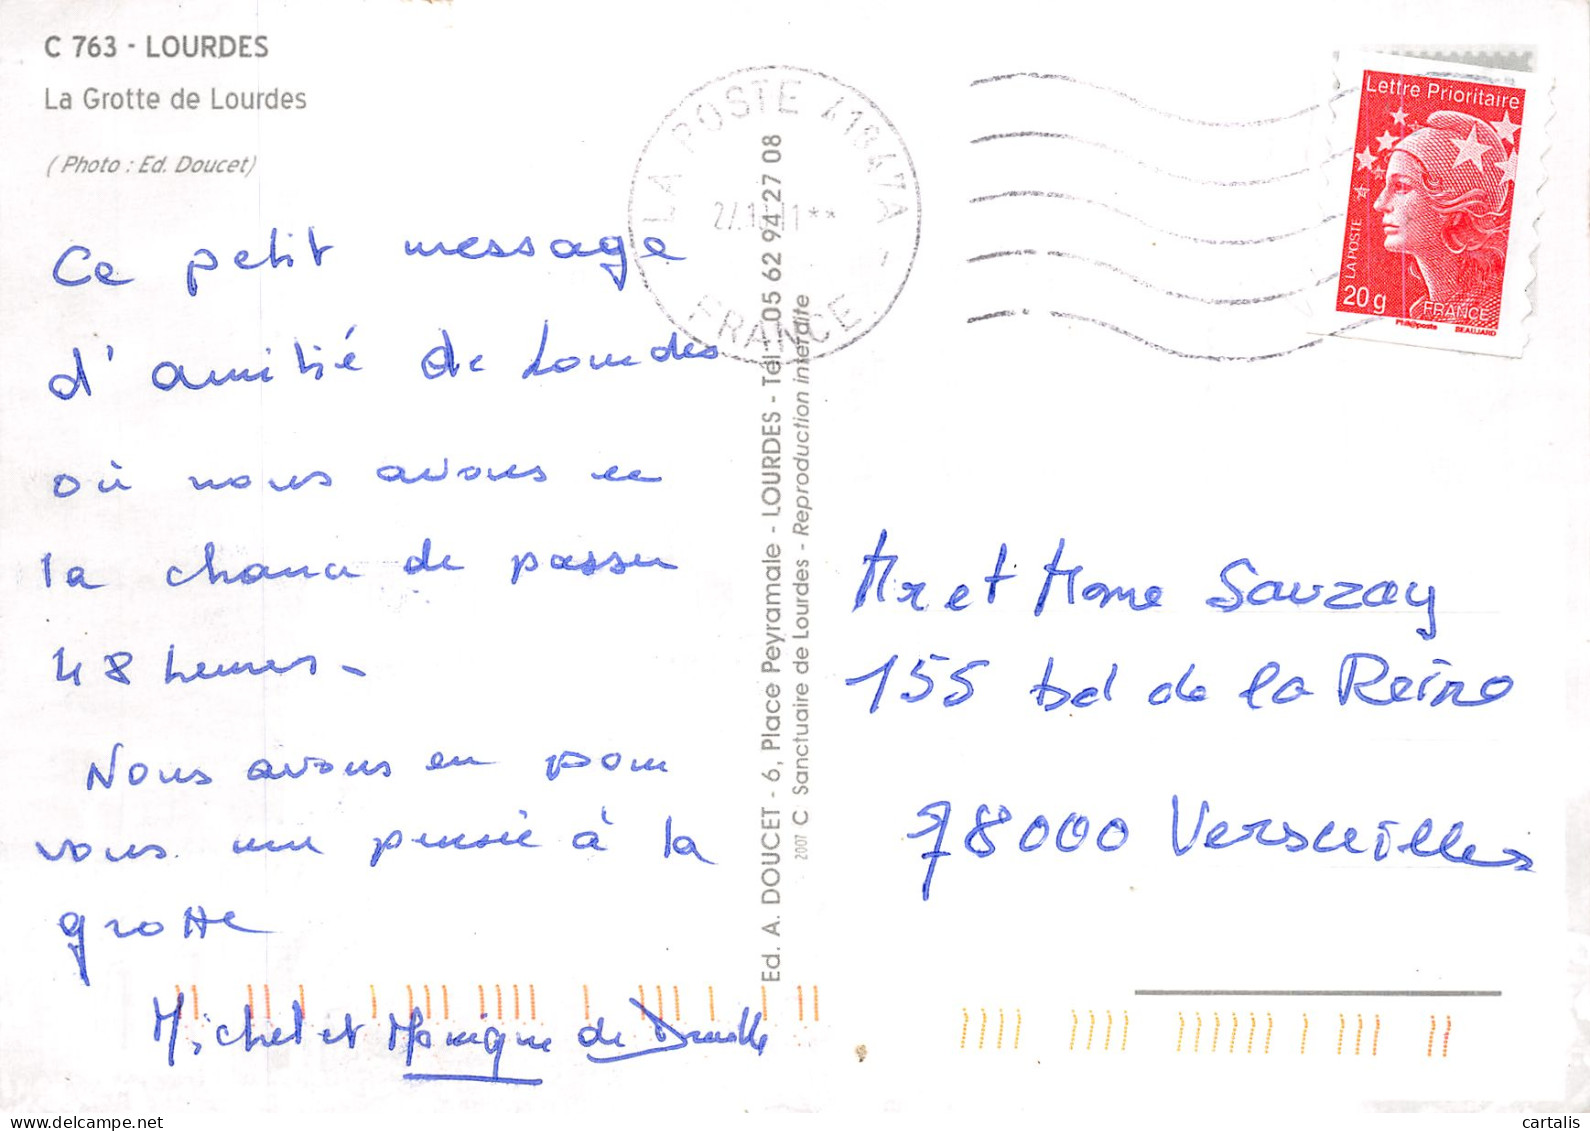 C 763 - LOURDES
La Grotte de Lourdes
(Photo : Ed. Doucet)
Ce petit message
d'amitié de Lourdes
où nous avons eu
la chance de passer
48 heures -
Nous avons eu pour
vous une pensée à la
grotte
Michel et Monique de
Ed. A. DOUCET - 6, Place Peyramale - LOURDES - Tél. 05 62 94 27 08
2007 C Sanctuaire de Lourdes - Reproduction interdite
LA POSTE 41947A -
FRANCE
Lettre Prioritaire
LA POSTE
20 g
FRANCE
Phil@poste BEAUJARD
Mr et Mme Sauzay
155 bd de la Reine
78000 Versailles
cartalis